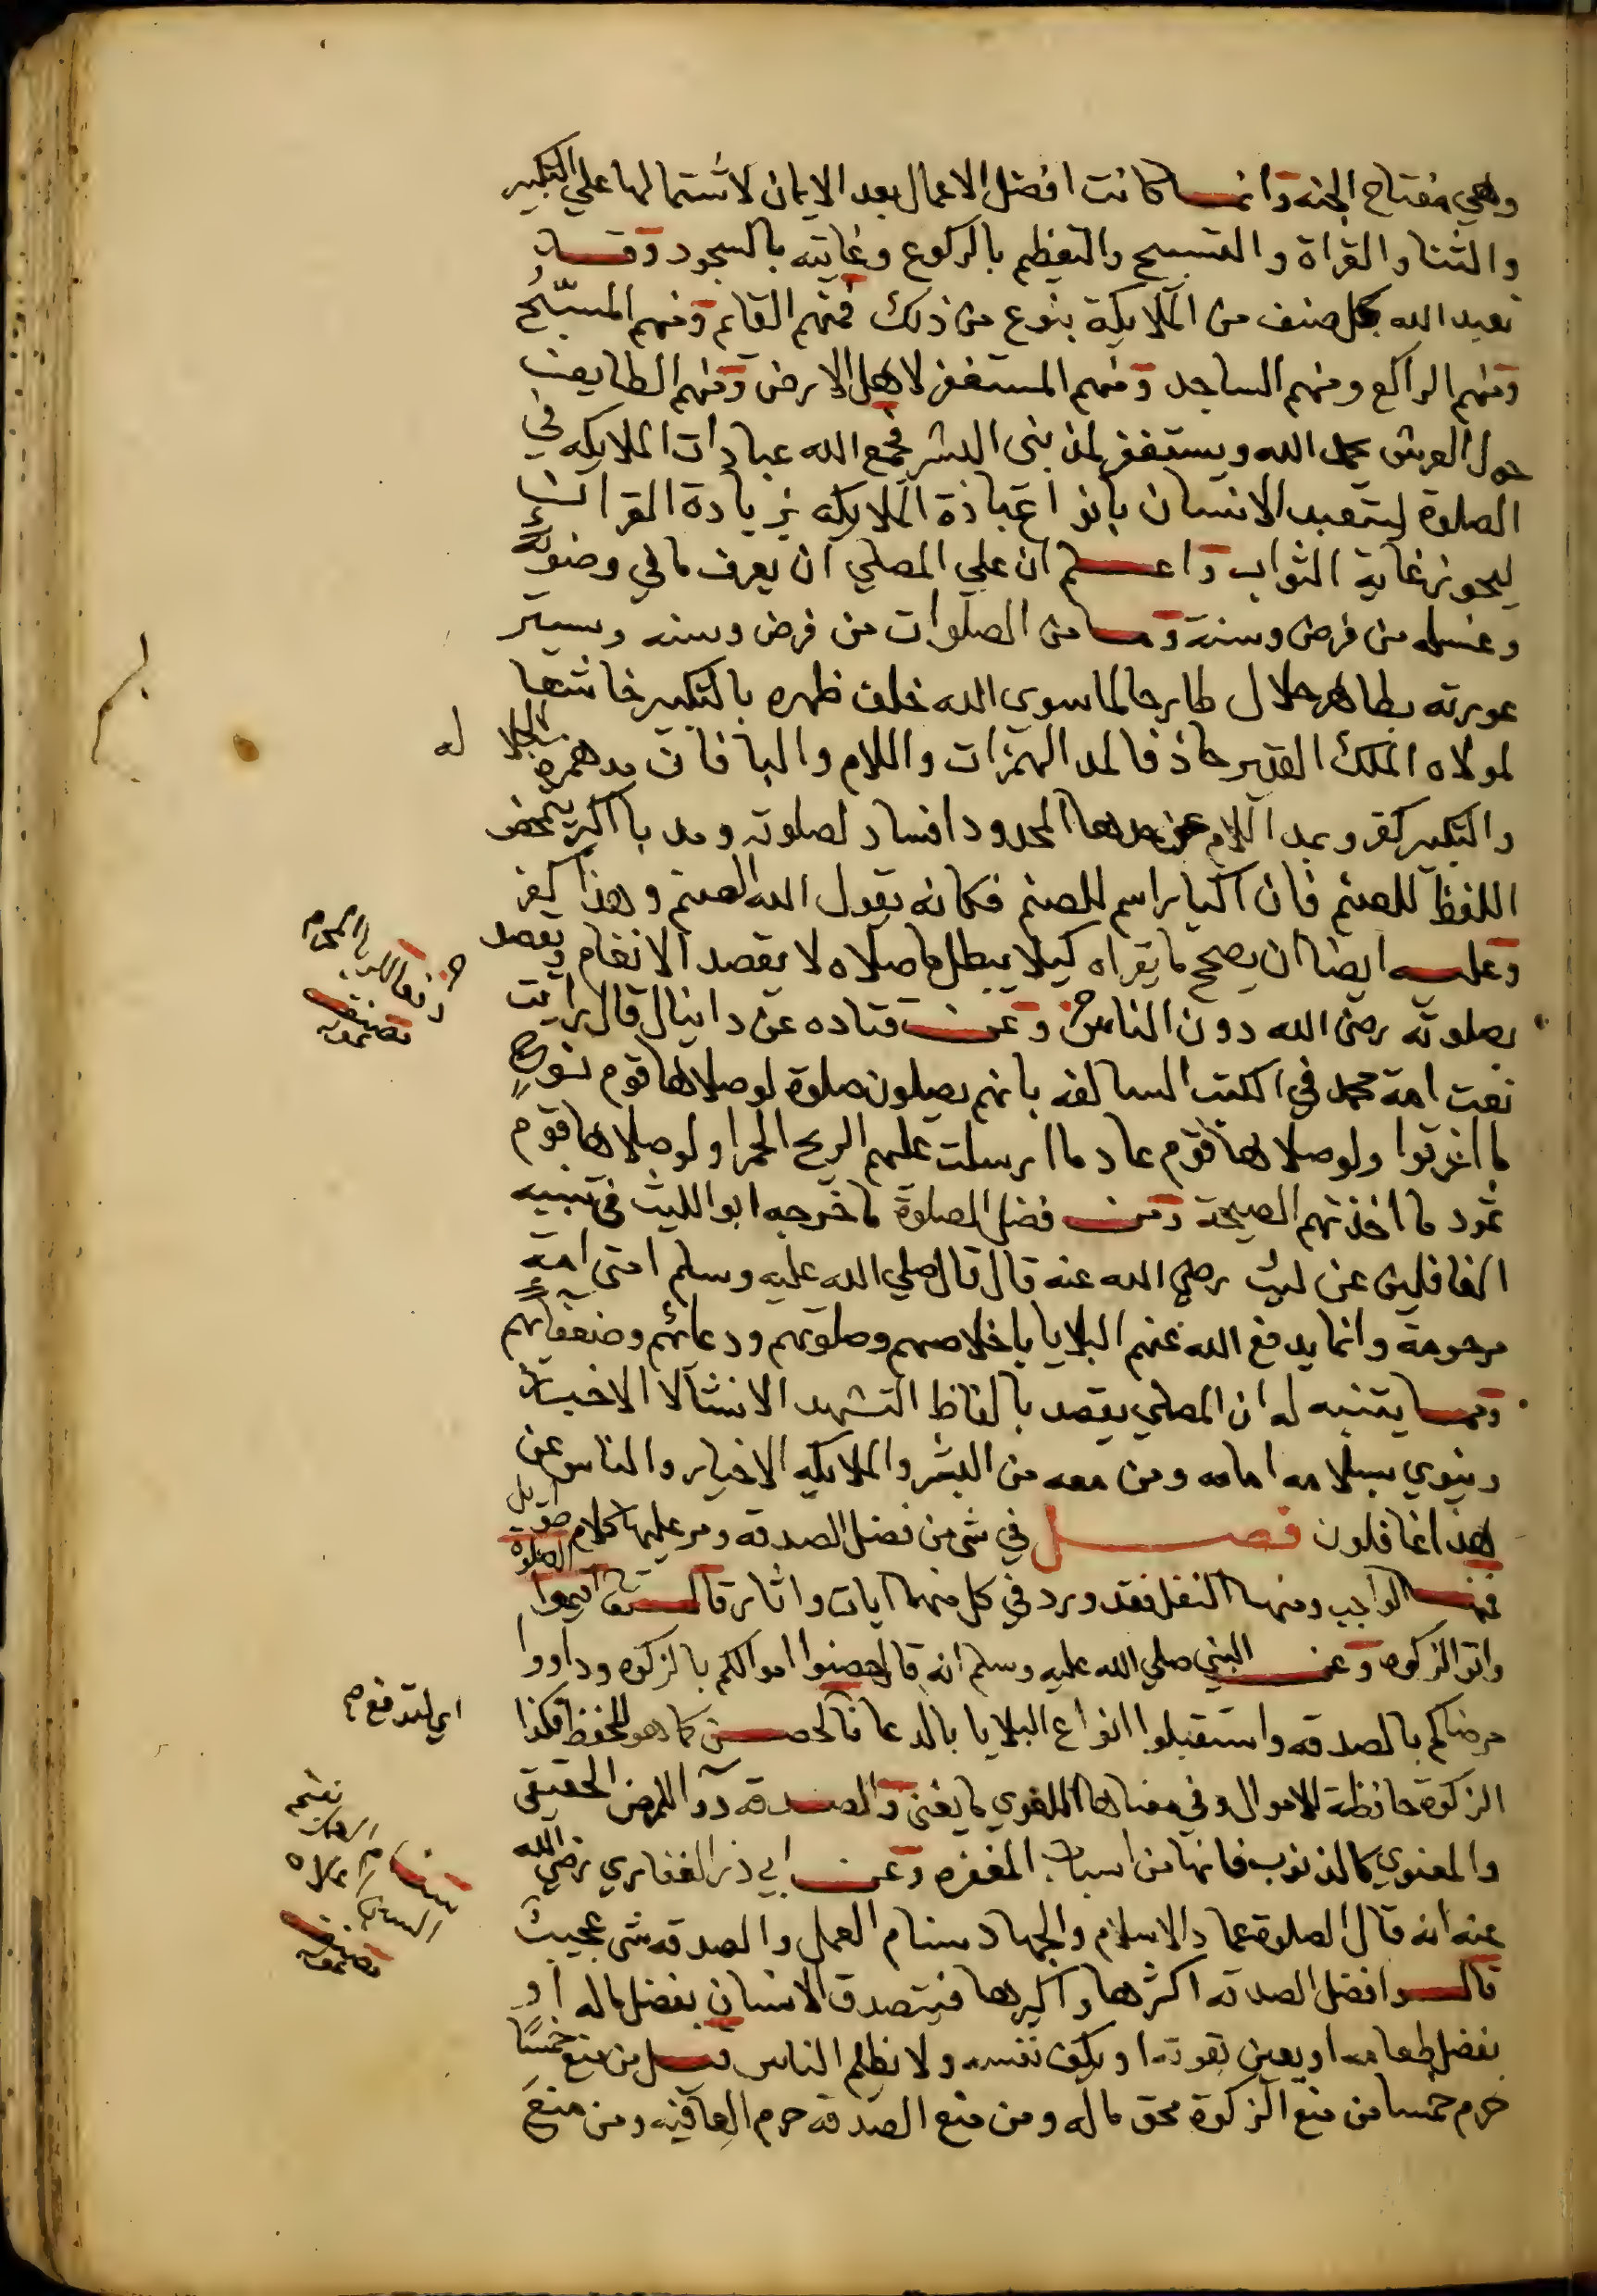 وهي مفتاح الجنة وانما كانت افضل الاعمال بعد الايمان لاشتمالها علي التكبير
والثنا والقراة والتسبيح والتعظيم بالركوع وغايته بالسجود وقد
تعبد الله كل صنف من الملايكة بنوع من ذلك فمنهم القايم ومنهم المسبّح
ومنهم الراكع ومنهم الساجد ومنهم المستغفر لاهل الارض ومنهم الطايف
حول العرش بحمد الله ويستغفر لمذنبي البشر فجمع الله عبادات الملايكه في
الصلوة ليتعبد الانسان بانواع عبادة الملايكه بزيادة القران
ليحوز غاية الثواب واعلم ان علي المصلي ان يعرف ما في وضوئه
وغسله من فرض وسنة وما من الصلوات من فرض وسنه ويستر
عورته بطاهر حلال طارحا لما سوي الله خلف ظهره بالتكبير خاشعا
لمولاه الملك القدير حاذفا لمد الهمزات واللام والبا فان مد همزة الجلاله
والتكبير كفر وبمد اللام عن حدها المحدود افساد لصلوته ومد با اكبر يمحض
اللفظ للصنم فان اكبار اسم للصنم فكانه يقول الله الصنم وهذا كفر
وعليه ايضا ان يصحح ما يقراه كيلا يبطل ما صلاه لا يقصد الانغام ويقصد
بصلوته رضي الله دون الناس وعن قتاده عن دانيال قال رايت
نعت امة محمد في الكتب السالفه بانهم يصلون صلوة لو صلاها قوم نوح
ما اغرقوا ولو صلاها قوم عاد ما ارسلت عليهم الريح الحمرا ولو صلاها قوم
ثمود ما اخذتهم الصيحة ومن فضل الصلوة ما خرجه ابو الليث في تنبيه
الغافلين عن ليث رضي الله عنه قال قال صلي الله عليه وسلم امتي امة
مرحومة وانما يدفع الله عنهم البلايا باخلاصهم وصلوتهم ودعائهم وضعفائهم
ومما يتنبه له ان المصلي يقصد بالفاظ التشهد الانشا لا الاخبار
وينوي بسلامه امامه ومن معه من البشر والملايكه الاخيار والناس عن
هذا غافلون فصل في شي من فضل الصدقه ومر عليها كلام طويل
فمنها الواجب ومنها النفل فقد ورد في كل منهما ايات واثار قال تعا اقيموا الصلوة
واتوا الزكوه وعن النبي صلي الله عليه وسلم انه قال حصنوا اموالكم بالزكوه وداووا
مرضاكم بالصدقه واستقبلوا انواع البلايا بالدعا فالحصن كما هو للحفظ فكذا
اي لتدفع
الزكوة حافظة للاموال وفي معناها اللغوي ما يغني والصدقة دوآ للمرض الحقيقي
والمعنوي كالذنوب فانها من اسباب المغفره وعن ابي ذر الغفاري رضي الله
عنه انه قال الصلوة عماد الاسلام والجهاد سنام العمل والصدقه شي عجيب
قالوا فضل الصدقه اكثرها واكبرها فيتصدق الانسان بفضل ماله او
بفضل طعامه او يعين بقوته او يكف نفسه ولا يظلم الناس قيل من منع خمسًا
حرم خمسا من منع الزكوة محق ماله ومن منع الصدقه حرم العافيه ومن منع